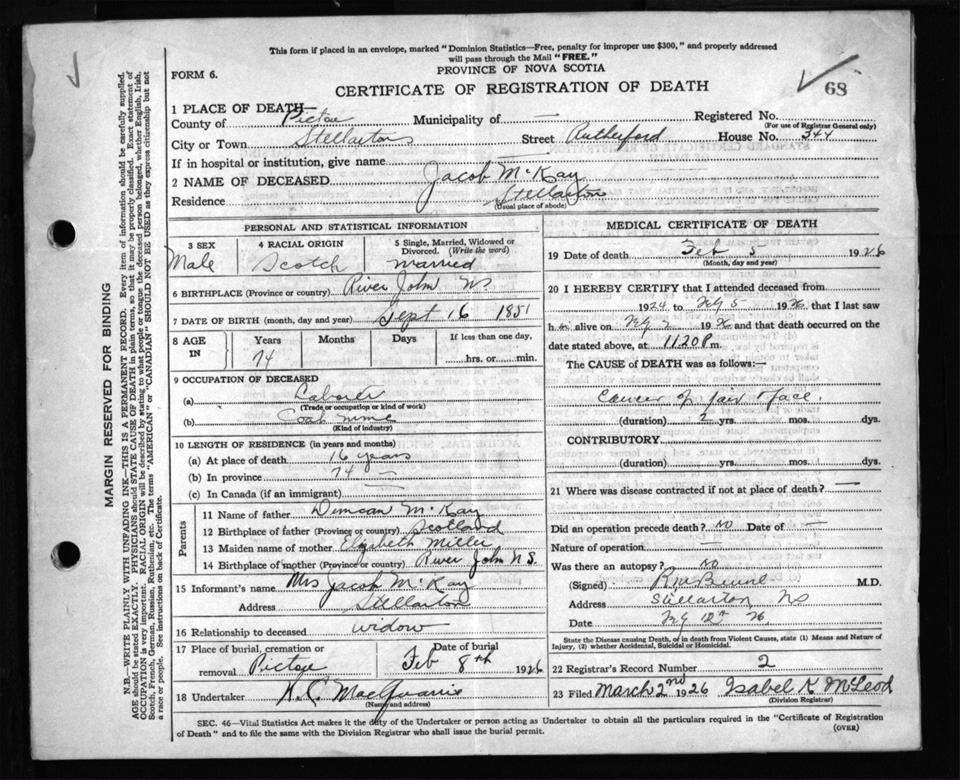 This form if placed in an envelope, marked "Dominion Statistics—Free, penalty for improper use $300," and properly addressed
will pass through the Mail "FREE."
FORM 6.
PROVINCE OF NOVA SCOTIA
CERTIFICATE OF REGISTRATION OF DEATH
68
1 PLACE OF DEATH—
County of Pictou Municipality of — Registered No.
(For use of Registrar General only)
City or Town Stellarton Street Rutherford House No. 344
If in hospital or institution, give name —
2 NAME OF DECEASED Jacob McKay
Residence Stellarton
(Usual place of abode)
PERSONAL AND STATISTICAL INFORMATION
3 SEX 4 RACIAL ORIGIN 5 Single, Married, Widowed or
Divorced. (Write the word)
Male Scotch Married
6 BIRTHPLACE (Province or country) River John NS
7 DATE OF BIRTH (month, day and year) Sept 16 1851
8 AGE IN Years Months Days If less than one day,
74 hrs. or min.
9 OCCUPATION OF DECEASED
(a) Laborer
(Trade or occupation or kind of work)
(b) Coal mine
(Kind of industry)
10 LENGTH OF RESIDENCE (in years and months)
(a) At place of death 16 years
(b) In province 74 —
(c) In Canada (if an immigrant) —
Parents
11 Name of father Duncan McKay
12 Birthplace of father (Province or country) Scotland
13 Maiden name of mother Elizabeth Miller
14 Birthplace of mother (Province or country) River John N S.
15 Informant's name Mrs Jacob McKay
Address Stellarton
16 Relationship to deceased widow
17 Place of burial, cremation or Date of burial
removal Pictou Feb 8th 1926
18 Undertaker MacQuarrie
(Name and address)
MEDICAL CERTIFICATE OF DEATH
19 Date of death Feb 5 1926
(Month, day and year)
20 I HEREBY CERTIFY that I attended deceased from
1924 to 5 1926 that I last saw
h im alive on 1926 and that death occurred on the
date stated above, at 11.20 P m.
The CAUSE OF DEATH was as follows:—
Cancer of jaw & face.
(duration) 2 yrs. mos. dys.
CONTRIBUTORY
(duration) yrs. mos. dys.
21 Where was disease contracted if not at place of death? —
Did an operation precede death? No Date of —
Nature of operation —
Was there an autopsy? No
(Signed) M.D.
Address Stellarton, NS
Date 12th 26
State the Disease causing Death, or in death from Violent Causes, state (1) Means and Nature of
Injury, (2) whether Accidental, Suicidal or Homicidal.
22 Registrar's Record Number 2
23 Filed March 2nd 1926 Isabel K McLeod
(Division Registrar)
SEC. 46—Vital Statistics Act makes it the duty of the Undertaker or person acting as Undertaker to obtain all the particulars required in the "Certificate of Registration
of Death" and to file the same with the Division Registrar who shall issue the burial permit.
(OVER)
MARGIN RESERVED FOR BINDING
N.B.—WRITE PLAINLY WITH UNFADING INK—THIS IS A PERMANENT RECORD. Every item of information should be carefully supplied.
AGE should be stated EXACTLY. PHYSICIANS should STATE CAUSE OF DEATH in plain terms, so that it may be properly classified. Exact statement of
OCCUPATION is very important. RACIAL ORIGIN will be described by stating to what people or tongue the deceased person belonged, whether English, Irish,
Scotch, French, German, Russian, Ruthenian, etc. The terms "AMERICAN" or "CANADIAN" SHOULD NOT BE USED as they express citizenship but not
a race or people. See instructions on back of Certificate.